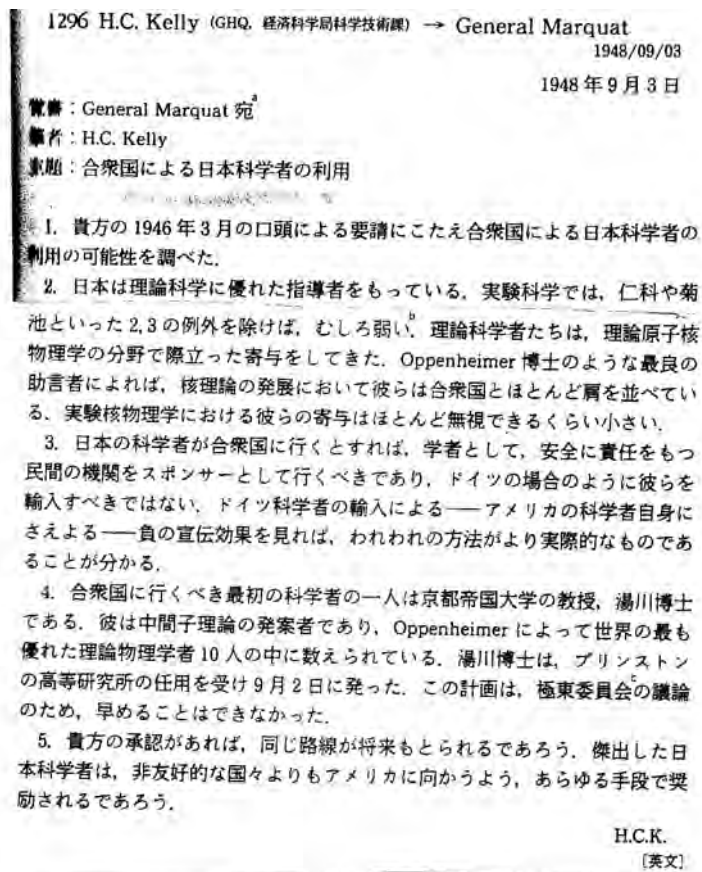 1296 H.C. Kelly (GHQ, 経済科学局科学技術課) → General Marquat
1948/09/03
1948年9月3日
覚書：General Marquat 宛a
筆者：H.C. Kelly
主題：合衆国による日本科学者の利用
1. 貴方の1946年3月の口頭による要請にこたえ合衆国による日本科学者の
利用の可能性を調べた．
2. 日本は理論科学に優れた指導者をもっている．実験科学では，仁科や菊
池といった2,3の例外を除けば，むしろ弱いb．理論科学者たちは，理論原子核
物理学の分野で際立った寄与をしてきた．Oppenheimer 博士のような最良の
助言者によれば，核理論の発展において彼らは合衆国とほとんど肩を並べてい
る．実験核物理学における彼らの寄与はほとんど無視できるくらい小さい．
3. 日本の科学者が合衆国に行くとすれば，学者として，安全に責任をもつ
民間の機関をスポンサーとして行くべきであり，ドイツの場合のように彼らを
輸入すべきではない．ドイツ科学者の輸入による――アメリカの科学者自身に
さえよる――負の宣伝効果を見れば，われわれの方法がより実際的なものであ
ることが分かる．
4. 合衆国に行くべき最初の科学者の一人は京都帝国大学の教授，湯川博士
である．彼は中間子理論の発案者であり，Oppenheimer によって世界の最も
優れた理論物理学者10人の中に数えられている．湯川博士は，プリンストン
の高等研究所の任用を受け9月2日に発った．この計画は，極東委員会cの議論
のため，早めることはできなかった．
5. 貴方の承認があれば，同じ路線が将来もとられるであろう．傑出した日
本科学者は，非友好的な国々よりもアメリカに向かうよう，あらゆる手段で奨
励されるであろう．
H.C.K.
［英文］